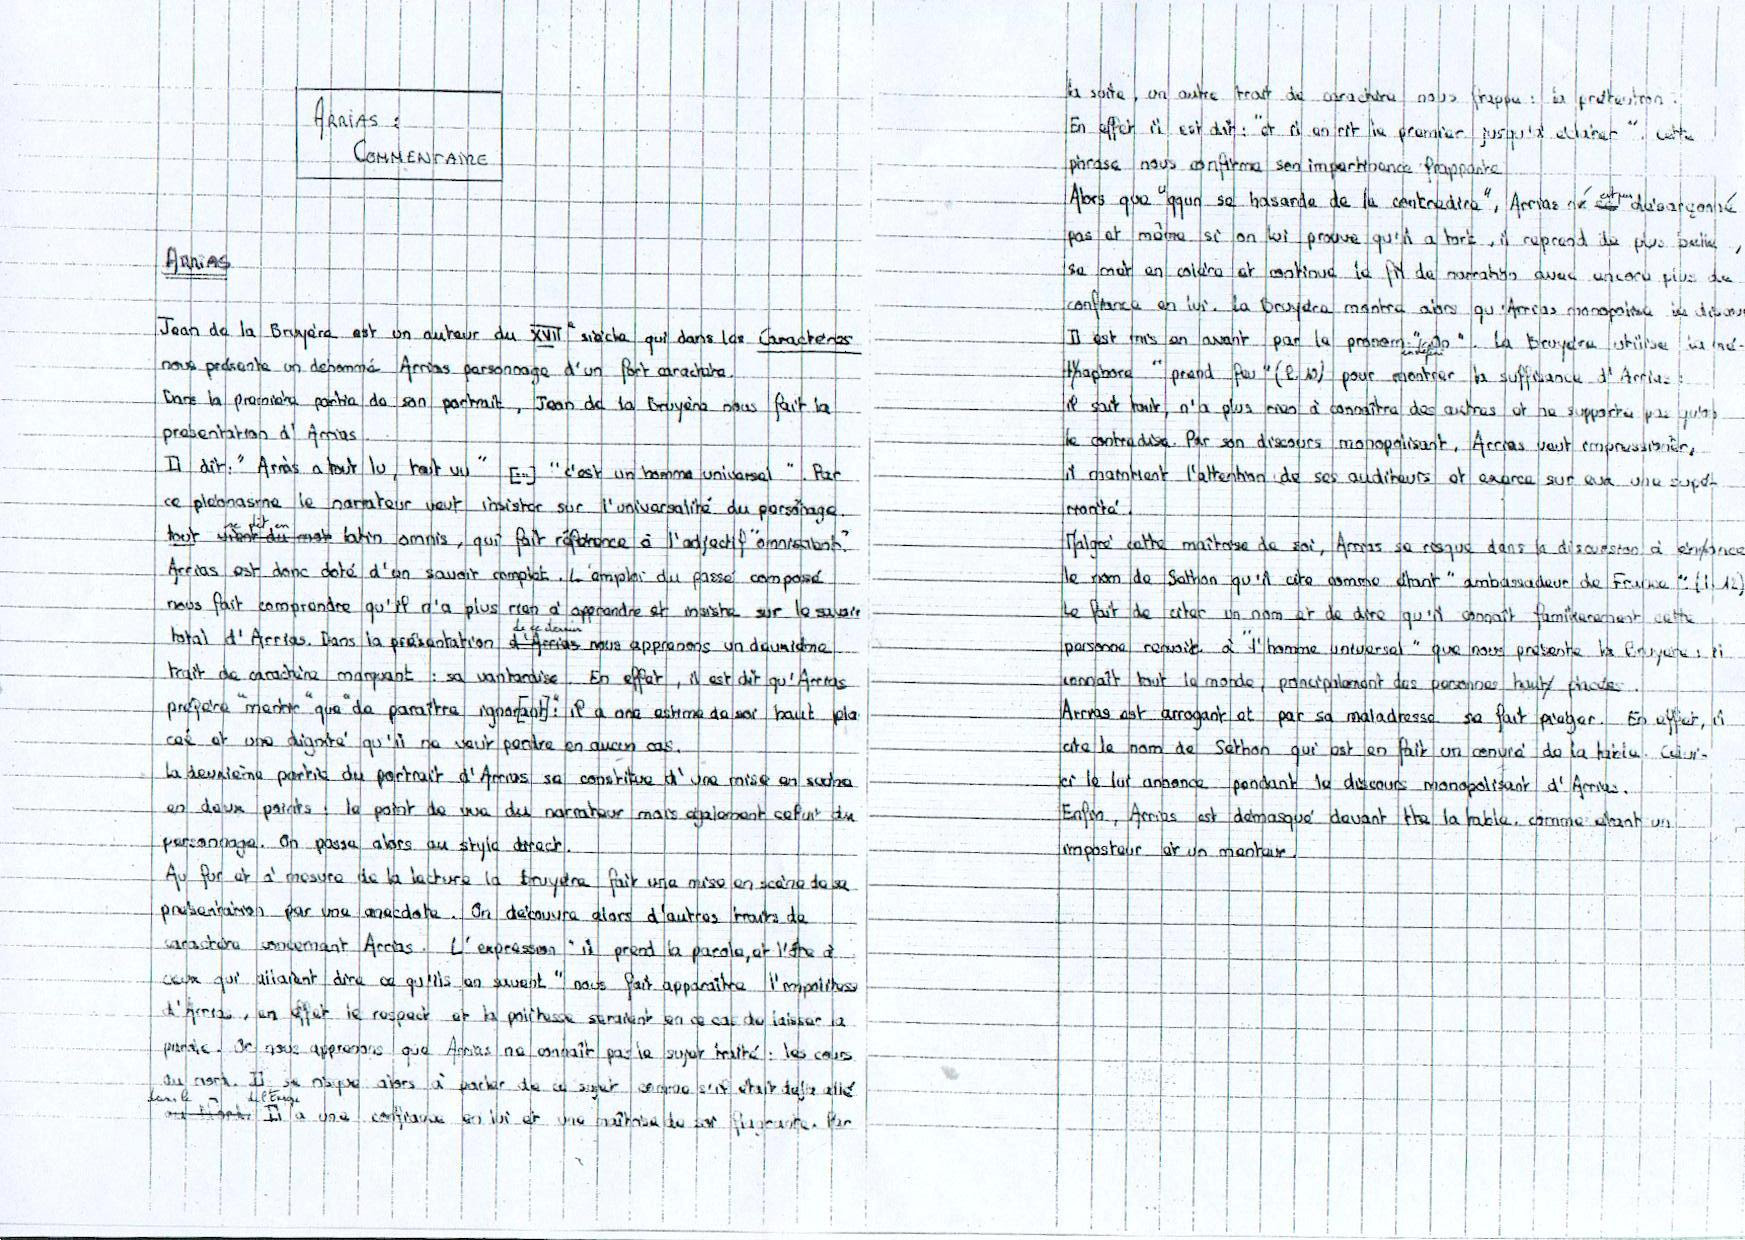 ARRIAS :
COMMENTAIRE
ARRIAS
Jean de la Bruyère est un auteur du XVII° siècle qui dans les Caractères
nous présente un dénommé Arrias personnage d'un fort caractère.
Dans la première partie de son portrait, Jean de la Bruyère nous fait la
présentation d'Arrias.
Il dit: "Arrias a tout lu, tout vu" [...] "c'est un homme universel". Par
ce pléonasme le narrateur veut insister sur l'universalité du personnage.
tout vient du mot se dit en latin omnis, qui fait référence à l'adjectif "omniscient".
Arrias est donc doté d'un savoir complet. L'emploi du passé composé
nous fait comprendre qu'il n'a plus rien à apprendre et insiste sur le savoir
total d'Arrias. Dans la présentation d'Arrias de ce dernier nous apprenons un deuxième
trait de caractère marquant : sa vantardise. En effet, il est dit qu'Arrias
préfère "mentir" que "de paraître ignor[ant]": il a une estime de soi haut pla
cée et une dignité qu'il ne veut perdre en aucun cas.
La deuxième partie du portrait d'Arrias se constitue d'une mise en scène
en deux points : le point de vue du narrateur mais également celui du
personnage. On passe alors au style direct.
Au fur et à mesure de la lecture la Bruyère fait une mise en scène de sa
présentation par une anecdote. On découvre alors d'autres traits de
caractère concernant Arrias. L'expression "il prend la parole, et l'ôte à
ceux qui allaient dire ce qu'ils en savent" nous fait apparaître l'impolitesse
d'Arrias, en effet le respect et la politesse seraient en ce cas de laisser la
parole. Or nous apprenons que Arrias ne connaît pas le sujet traité : les cours
du nord. Il se risque alors à parler de ce sujet comme s'il était déjà allé
au Nord. dans le Il a une confiance en lui et une maîtrise de soi flagrante. Par
la suite, un autre trait de caractère nous frappe : la prétention.
En effet il est dit : "et il en rit le premier jusqu'à éclater". Cette
phrase nous confirme son impertinence frappante
Alors que "qqun se hasarde de le contredire", Arrias n'est désarçonné
pas et même si on lui prouve qu'il a tort, il reprend de plus belle,
se met en colère et continue le fil de narration avec encore plus de
confiance en lui. La Bruyère montre alors qu'Arrias monopolise le discours
Il est mis en avant par le pronom indéfini. La Bruyère utilise la mé-
thaphore "prend feu" (l. 10) pour montrer la suffisance d'Arrias :
il sait tout, n'a plus rien à connaître des autres et ne supporte pas qu'on
le contredise. Par son discours monopolisant, Arrias veut impressionner,
il maintient l'attention de ses auditeurs et exerce sur eux une supé-
riorité.
Malgré cette maîtrise de soi, Arrias se risque dans la discussion à énoncer
le nom de Sethon qu'il cite comme étant "ambassadeur de France" (l. 12)
Le fait de citer un nom et de dire qu'il connaît familièrement cette
personne renvoit à "l'homme universel" que nous présente la Bruyère : il
connaît tout le monde, principalement des personnes haut placées.
Arrias est arrogant et par sa maladresse se fait piéger. En effet, il
cite le nom de Sethon qui est en fait un convive de la table. Celui-
ci le lui annonce pendant le discours monopolisant d'Arrias.
Enfin, Arrias est démasqué devant tte la table. comme étant un
imposteur et un menteur.